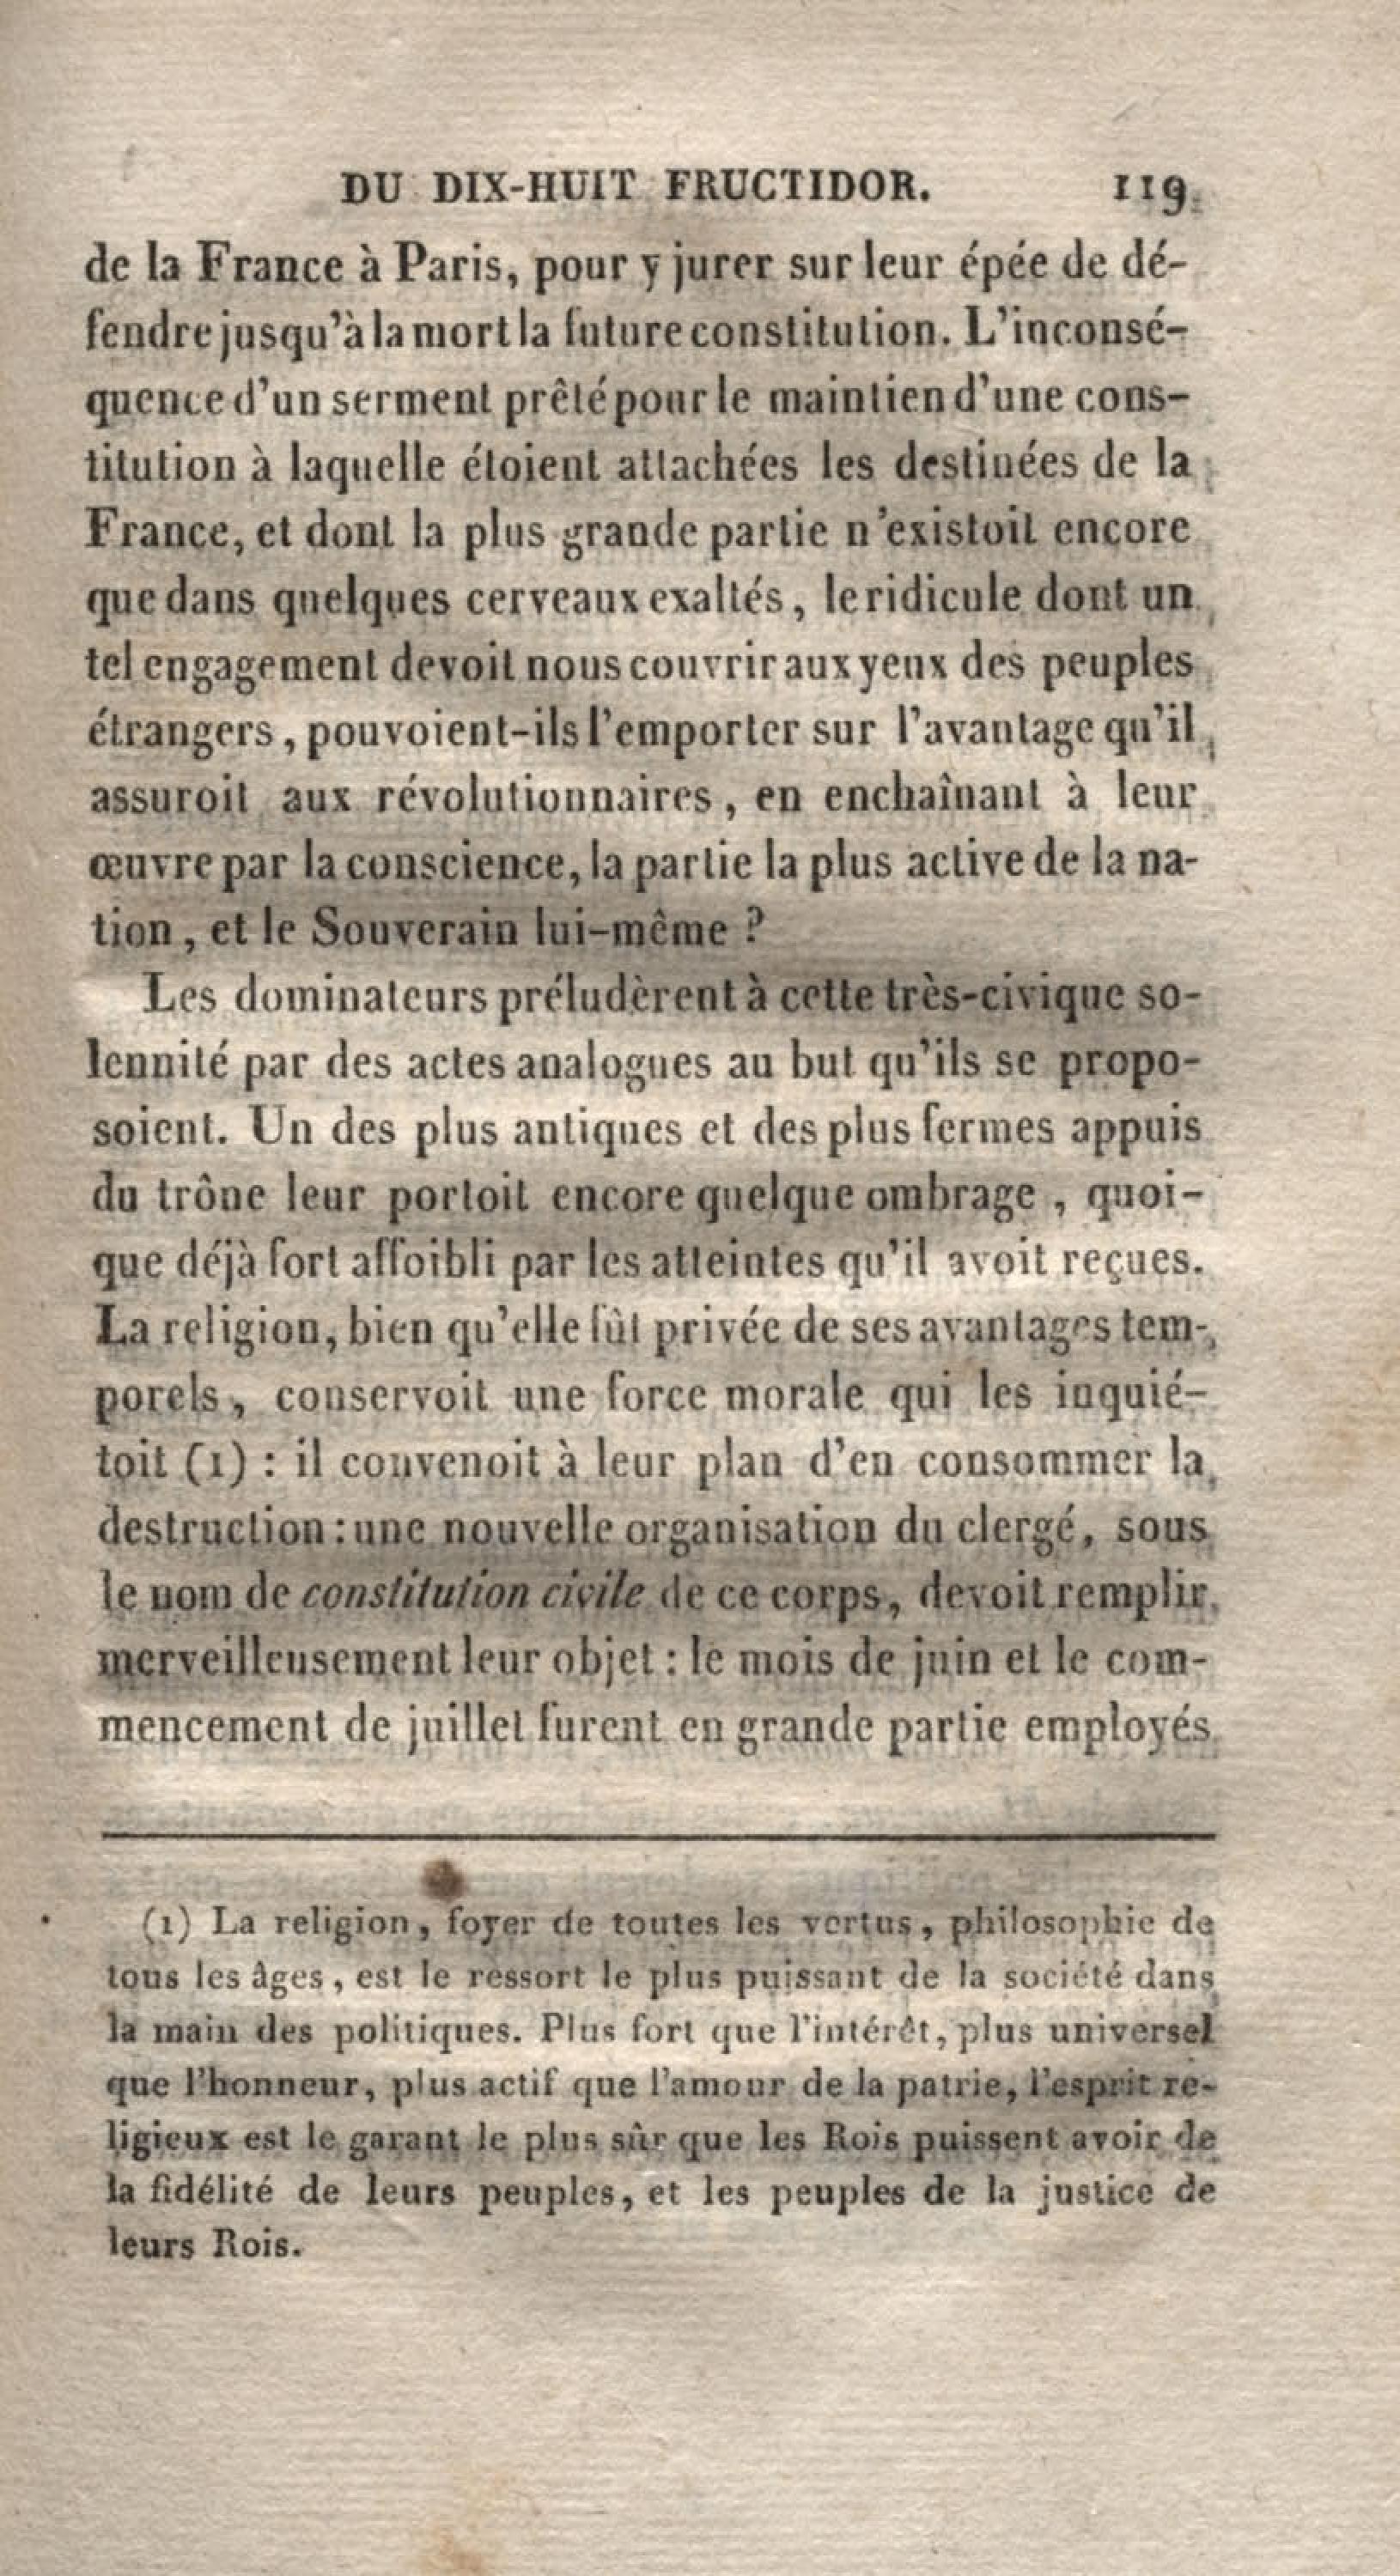 DU DIX-HUIT FRUCTIDOR. 119
de la France à Paris, pour y jurer sur leur épée de dé-
fendre jusqu'à la mort la future constitution. L'inconsé-
quence d'un serment prêté pour le maintien d'une cons-
titution à laquelle étoient attachées les destinées de la
France, et dont la plus grande partie n'existoit encore
que dans quelques cerveaux exaltés, le ridicule dont un
tel engagement devoit nous couvrir aux yeux des peuples
étrangers, pouvoient-ils l'emporter sur l'avantage qu'il
assuroit aux révolutionnaires, en enchaînant à leur
œuvre par la conscience, la partie la plus active de la na-
tion, et le Souverain lui-même ?
Les dominateurs préludèrent à cette très-civique so-
lennité par des actes analogues au but qu'ils se propo-
soient. Un des plus antiques et des plus fermes appuis
du trône leur portoit encore quelque ombrage, quoi-
que déjà fort affoibli par les atteintes qu'il avoit reçues.
La religion, bien qu'elle fût privée de ses avantages tem-
porels, conservoit une force morale qui les inquié-
toit (1) : il convenoit à leur plan d'en consommer la
destruction : une nouvelle organisation du clergé, sous
le nom de constitution civile de ce corps, devoit remplir
merveilleusement leur objet : le mois de juin et le com-
mencement de juillet furent en grande partie employés
(1) La religion, foyer de toutes les vertus, philosophie de
tous les âges, est le ressort le plus puissant de la société dans
la main des politiques. Plus fort que l'intérêt, plus universel
que l'honneur, plus actif que l'amour de la patrie, l'esprit re-
ligieux est le garant le plus sûr que les Rois puissent avoir de
la fidélité de leurs peuples, et les peuples de la justice de
leurs Rois.